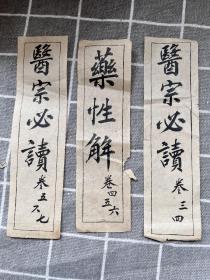 醫宗必讀 卷三四
藥性解 卷四五六
醫宗必讀 卷五六七